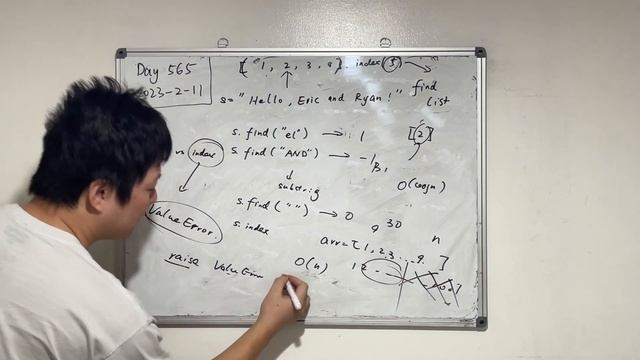 Day 565
2023-2-11
[ 1, 2, 3, 4 ]. index(5)
find
list
s = "Hello, Eric and Ryan!"
s. find ("el") → 1
[2]
vs index
s. find ("AND") → -1
substring
O(logn)
s. find ("") → 0
ValueError
s. index
9 30
n
arr = [1, 2, 3, ... 9. ]
raise ValueError
O(n)
1 2